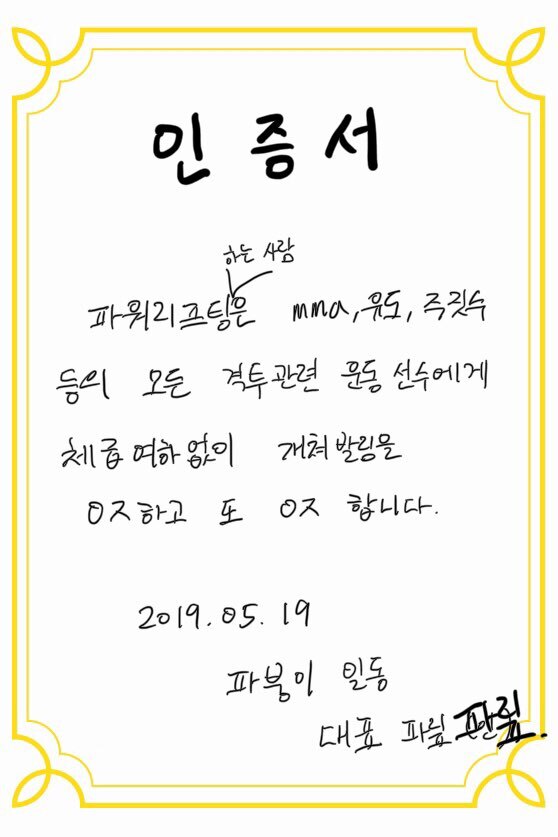 인증서
하는 사람
파워리프팅은 mma, 유도, 주짓수
등의 모든 격투관련 운동선수에게
체급여하없이 개쳐발림을
ㅇㅈ하고 또 ㅇㅈ 합니다.
2019.05.19
파붕이 일동
대표 파륖